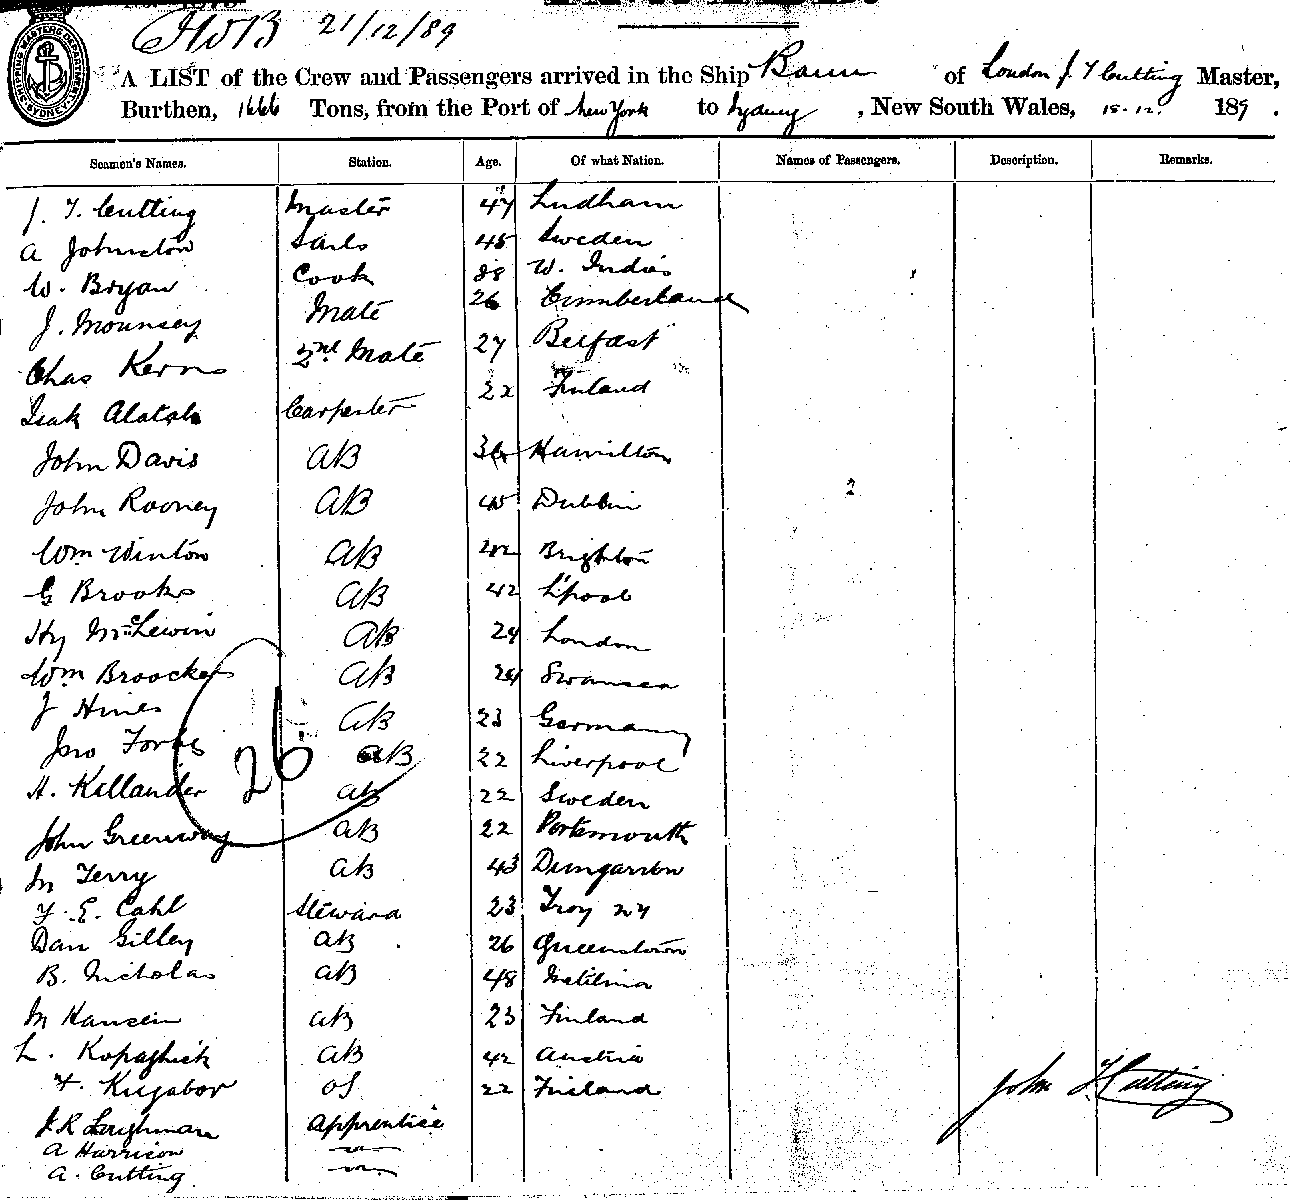 21/12/89
A LIST of the Crew and Passengers arrived in the Ship Bann of London J. T Cutting Master,
Burthen, 1666 Tons, from the Port of New York to Sydney, New South Wales, 15-12. 1889.
Seamen's Names. Station. Age. Of what Nation. Names of Passengers. Description. Remarks.
J. T. Cutting Master 47 Ludham
A Johnston Sails 45 Sweden
W. Bryan Cook 38 W. Indies
J. Mounsey Mate 26 Cumberland
Chas Kerns 2nd Mate 27 Belfast
Isak Alatalo Carpenter 22 Finland
John Davis AB Hamilton
John Rooney AB 40 Dublin
Wm Winton AB Brighton
G Brooks AB 42 L'pool
Hy McLewin AB 24 London
Wm Broockes AB Swansea
J Hines AB 23 Germany
Jno Forbes AB 22 Liverpool
26
A. Killander AB 22 Sweden
John Greenway AB 22 Portsmouth
M Terry AB 43 Dungarvon
F. E. Cahl Steward 23 Troy NY
Dan Gilley AB 26 Queenstown
B. Nicholas AB 48
M Hansein AB 23 Finland
L. AB 42 Austria
OS 22 Finland
J. R Apprentice
A Harrison
A. Cutting
John T Cutting